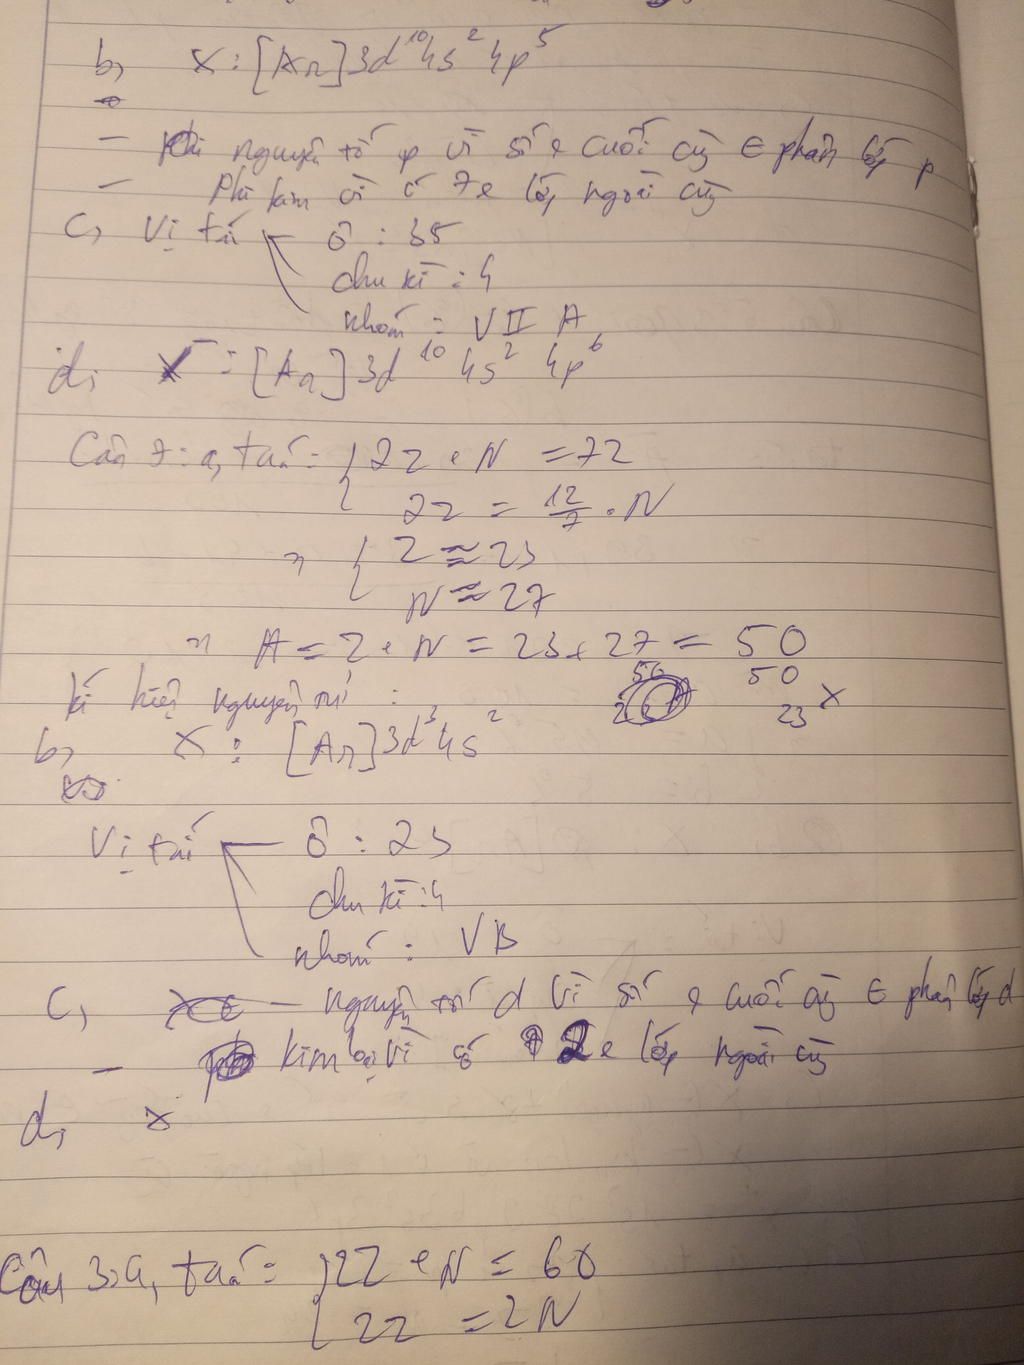 b, X : [Ar] 3d¹⁰ 4s² 4p⁵
- nguyên tố p vì số e cuối cùng ∈ phân lớp p
- Phi kim vì có 7e lớp ngoài cùng
c, Vị trí ô : 35
chu kì : 4
nhóm : VII A
d, X⁻ : [Ar] 3d¹⁰ 4s² 4p⁶
Câu 7 : a, ta có : { 2Z + N = 72
2Z = 12/7 . N
=> { Z ≈ 23
N ≈ 27
=> A = Z + N = 23 + 27 = 50
kí hiệu nguyên tử : ⁵⁰₂₃X
b, X : [Ar] 3d³ 4s²
Vị trí ô : 23
chu kì : 4
nhóm : VB
c, - nguyên tố d vì số e cuối cùng ∈ phân lớp d
- kim loại vì có 2e lớp ngoài cùng
d, X
Câu 3 : a, ta có : { 2Z + N = 60
2Z = 2N